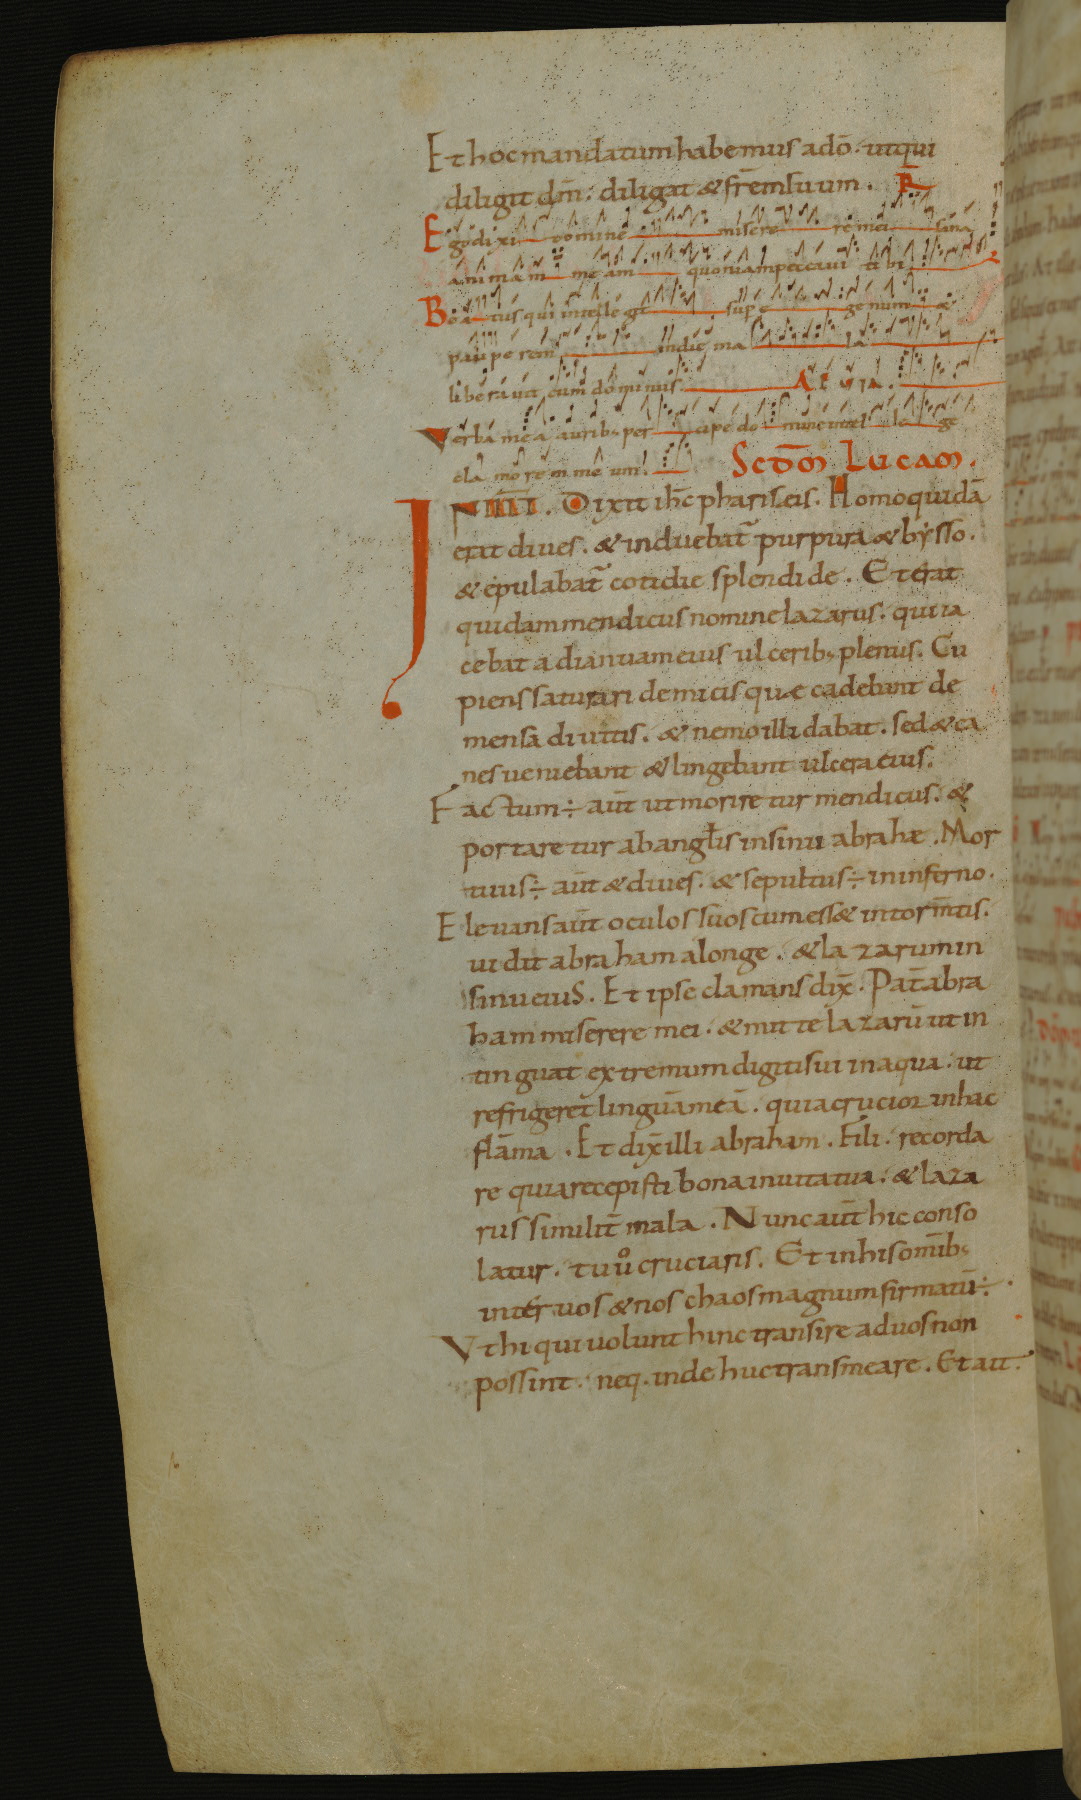 Et hoc mandatum habemus a dō. ut qui
diligit dm̄. diligat & frēm suum. R̄
Ego dixi domine miserere mei sana
animam meam quoniam peccavi tibi
Beatus qui intellegit supe egenum &
pauperem in die mala
liberavit eum dominus AEUIA.
Verba mea aurib; percipe do mine intel lege
cla morem meum. Scdm Lucam.
IN illi. Dixit ihc̄ phariseis. Homo quidā
erat dives. & induebat̄ purpura & bysso.
& epulabat̄ cotidie splendide. Et erat
quidam mendicus nomine lazarus. qui ia
cebat ad ianuam eius ulcerib; plenus. Cu
piens saturari de micis quae cadebant de
mensa divitis. & nemo illi dabat. sed & ca
nes veniebant & lingebant ulcera eius.
Factum ÷ aut̄ ut moriretur mendicus. &
portaretur ab angl̄is in sinu abrahae. Mor
tuus ÷ aut̄ & dives. & sepultus ÷ in inferno.
Elevans aut̄ oculos suos cum ess& in torm̄tis.
vidit abraham a longe. & lazarum in
sinu eius. Et ipse clamans dix̄. Pat̄ abra
ham miserere mei. & mitte lazarū ut in
tinguat extremum digiti sui in aqua. ut
refrigeret linguā meā. quia crucior in hac
flāma. Et dix̄ illi abraham. Fili. recorda
re quia recepisti bona in vita tua. & laza
rus similit̄ mala. Nunc aut̄ hic conso
latur. tu uo cruciaris. Et in his omīb;
inter vos & nos chaos magnum firmatū ÷.
Ut hi qui volunt hinc transire ad vos non
possint. neq. inde huc transmeare. Et ait.